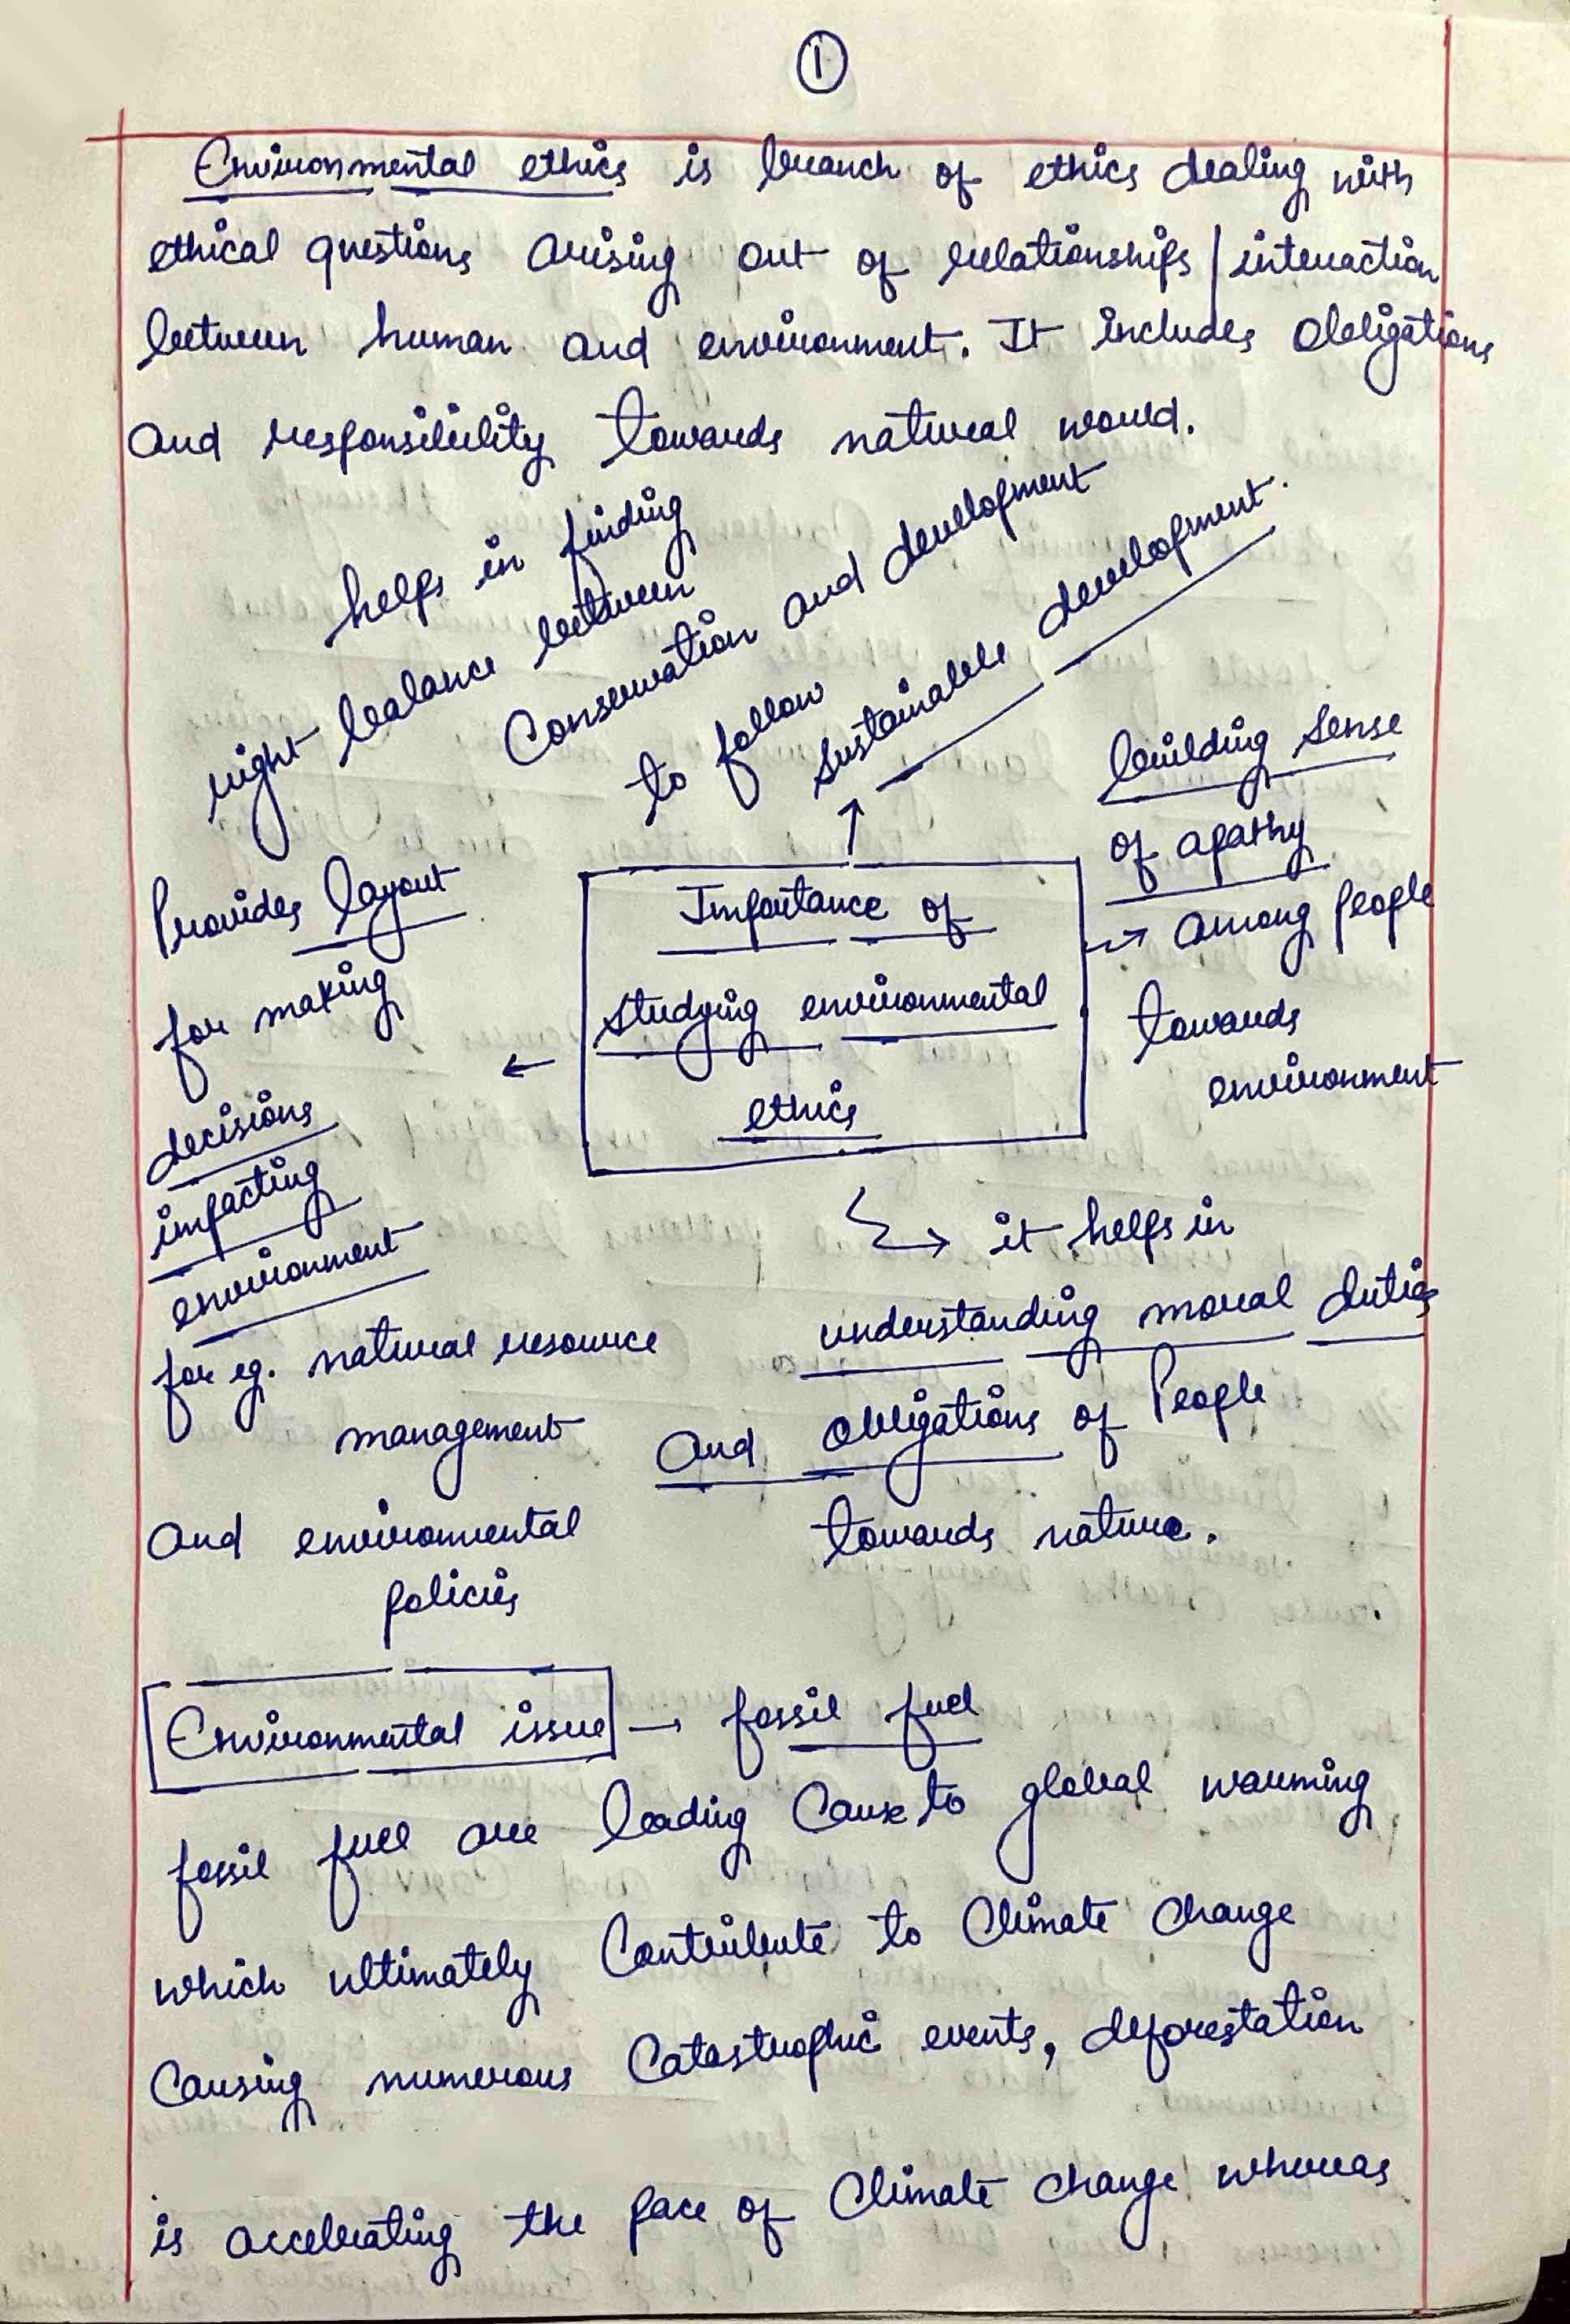 1
Environmental ethics is branch of ethics dealing with
ethical questions arising out of relationships/interaction
between human and environment. It includes obligations
and responsibility towards natural world.
helps in finding
right balance between
Conservation and development
to follow
sustainable development.
building sense
of apathy
among people
towards
environment
Provides layout
for making
decisions
impacting
environment
for eg. natural resource
management
and environmental
policies
Importance of
studying environmental
ethics
it helps in
understanding moral duties
and obligations of People
towards nature.
Environmental issue → fossil fuel
fossil fuel are leading Cause to global warming
which ultimately Contribute to Climate Change
Causing numerous Catastrophic events, deforestation
is accelerating the pace of Climate change whereas